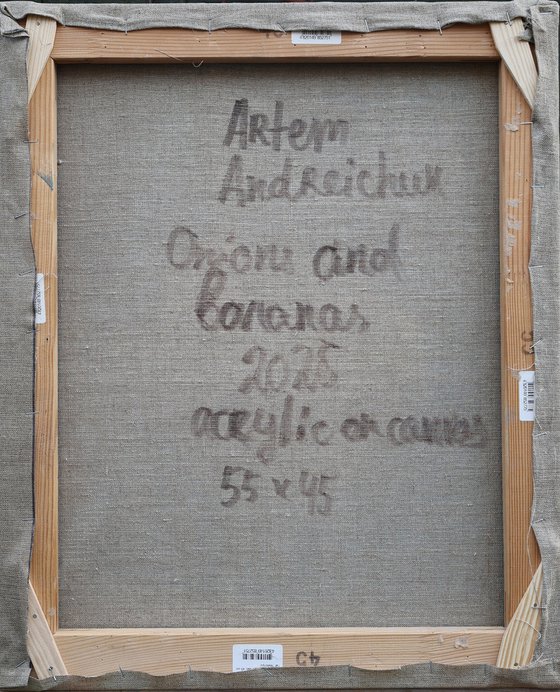 Artem
Andreichuk
Onions and
bananas
2025
acrylic on canvas
55 x 45
55
45